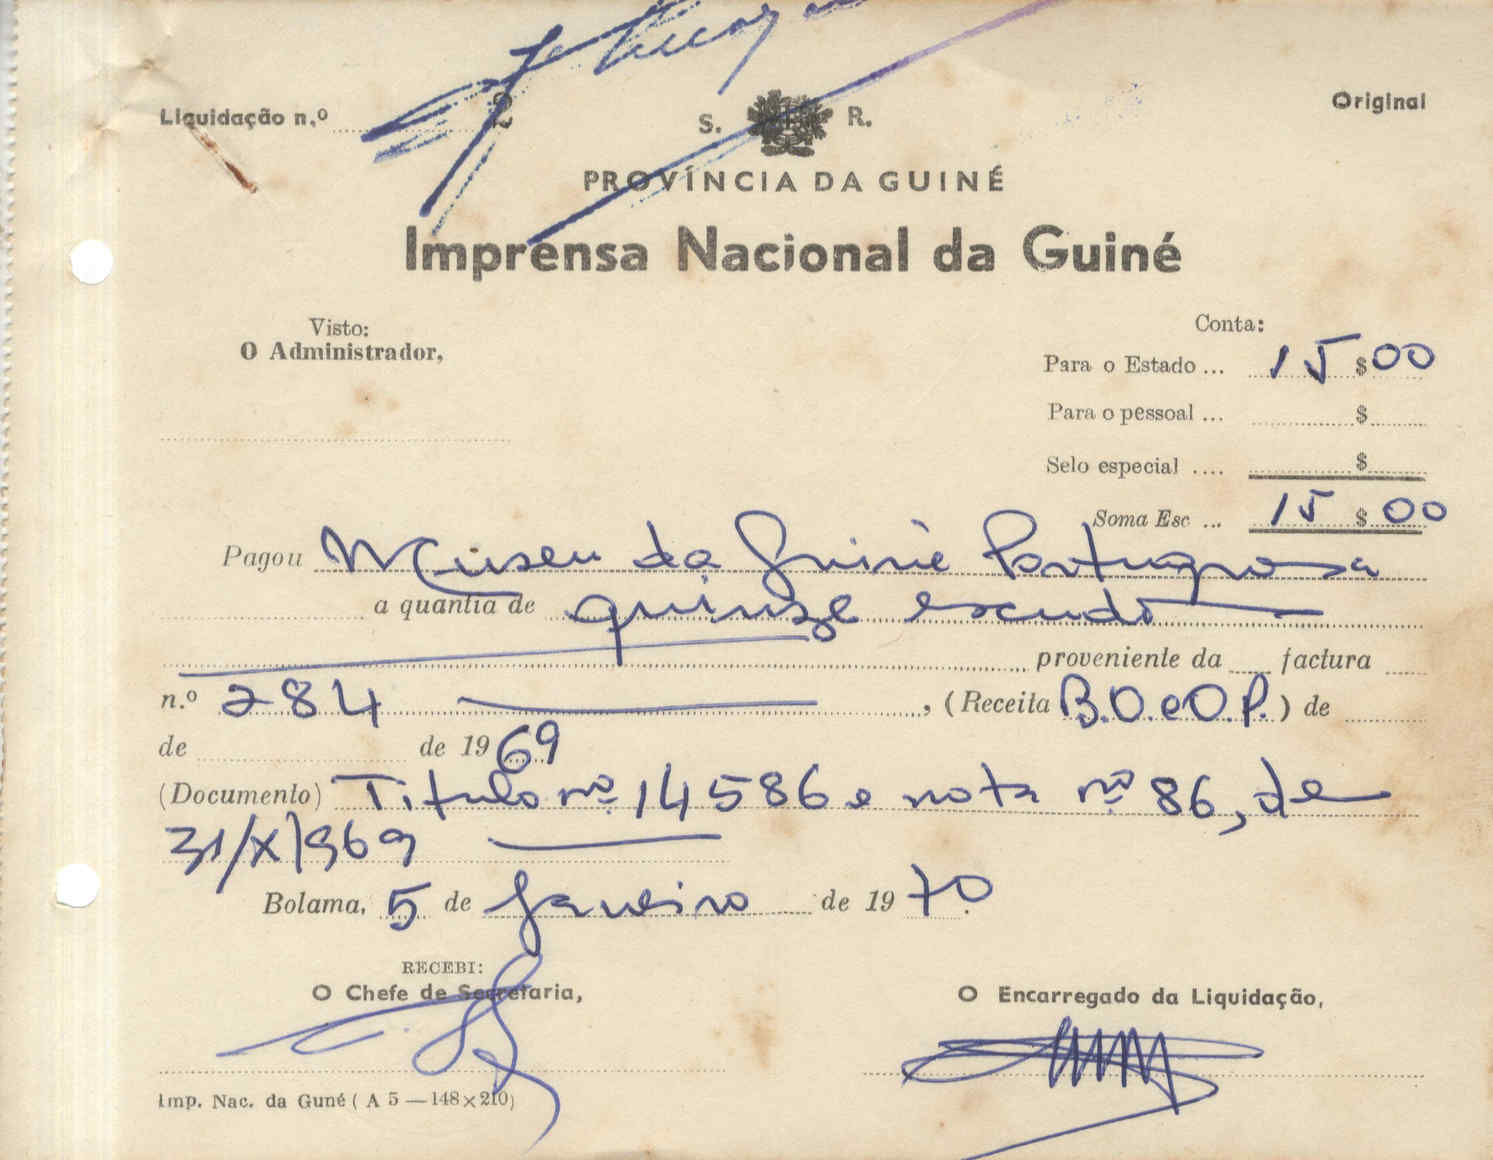 Liquidação n.º 2
Original
S. R.
PROVÍNCIA DA GUINÉ
Imprensa Nacional da Guiné
Visto:
O Administrador,
Conta:
Para o Estado ... 15 $ 00
Para o pessoal ... $
Selo especial .... $
Soma Esc ... 15 $ 00
Pagou Museu da Guiné Portuguesa
a quantia de quinze escudos
proveniente da factura
n.º 284, (Receita B.O. e O.P.) de
de de 1969
(Documento) Titulo nº 14586 e nota nº 86, de
31/X/969
Bolama, 5 de Janeiro de 1970
RECEBI:
O Chefe de Secretaria,
O Encarregado da Liquidação,
Imp. Nac. da Guné ( A 5 — 148×210)